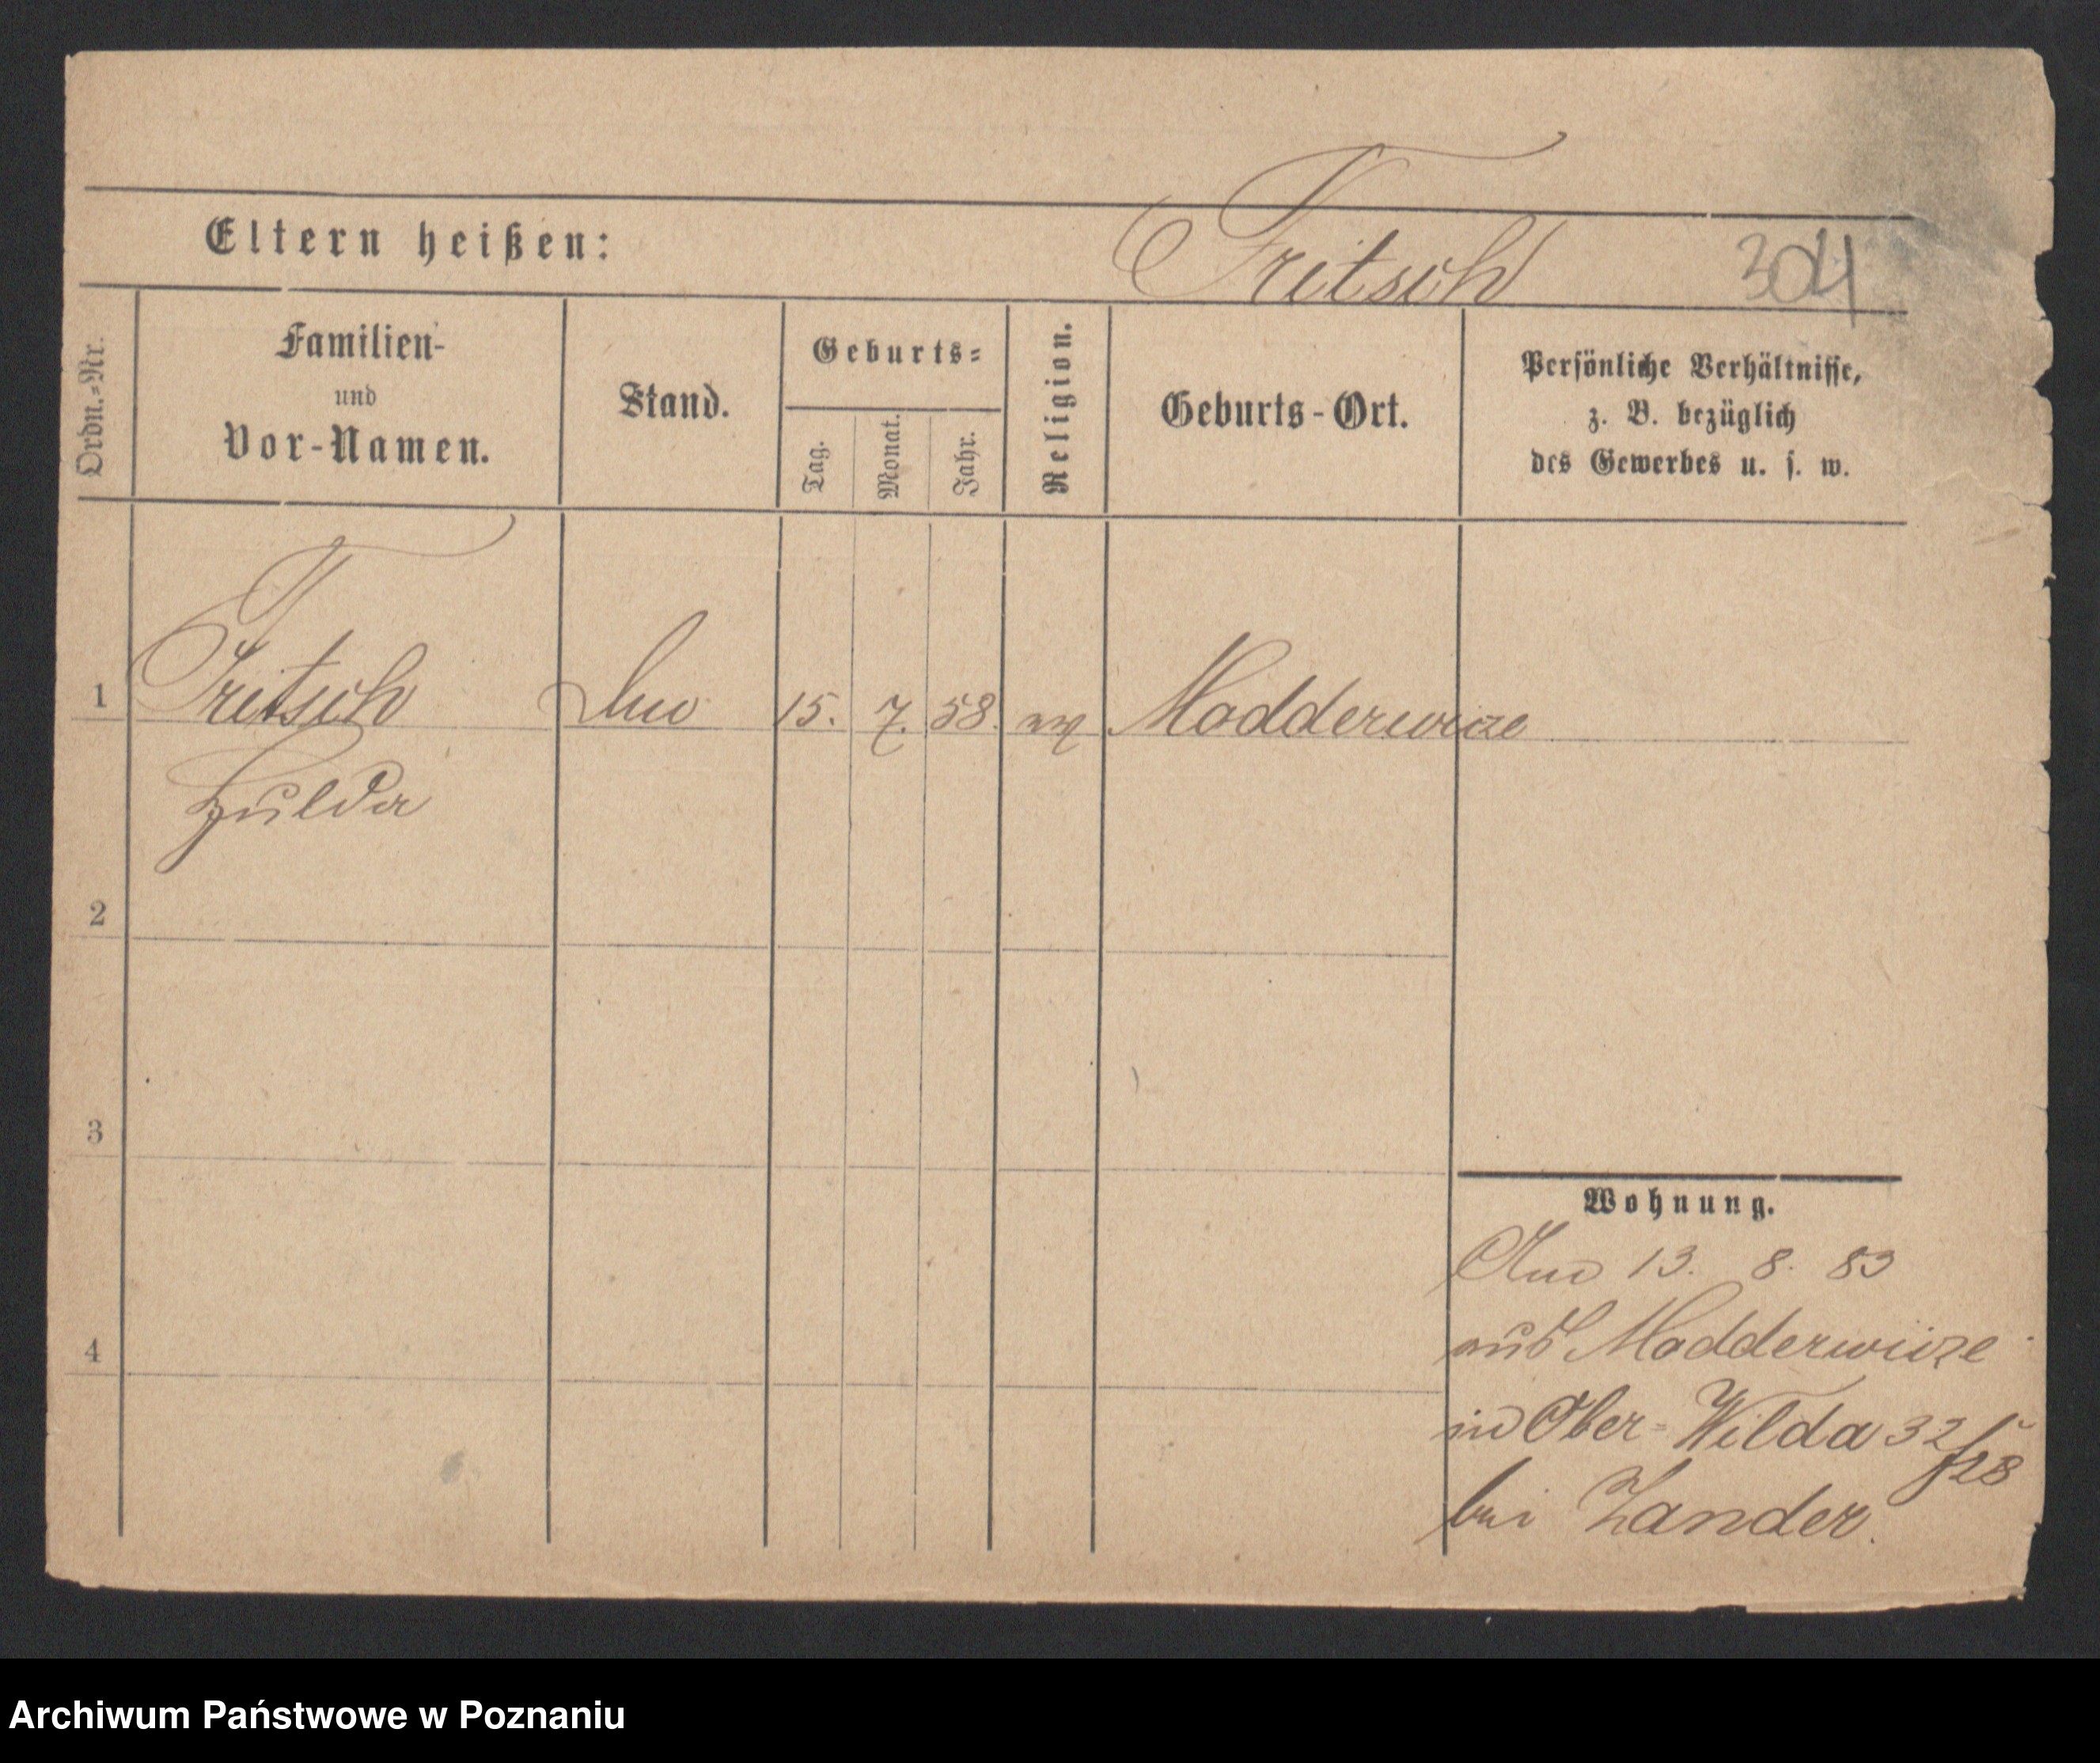 Eltern heißen:
Fritsch
304
Ordn.-Nr.
Familien-
und
Vor-Namen.
Stand.
Geburts-
Tag.
Monat.
Jahr.
Religion.
Geburts-Ort.
Persönliche Verhältnisse,
z. B. bezüglich
des Gewerbes u. s. w.
1 Fritsch 15. 7. 58. Modderwize
Hulda
2
3
4
Wohnung.
13. 8. 83
aus Modderwize
in Ober-Wilda 32/128
bei Zander.
Archiwum Państwowe w Poznaniu